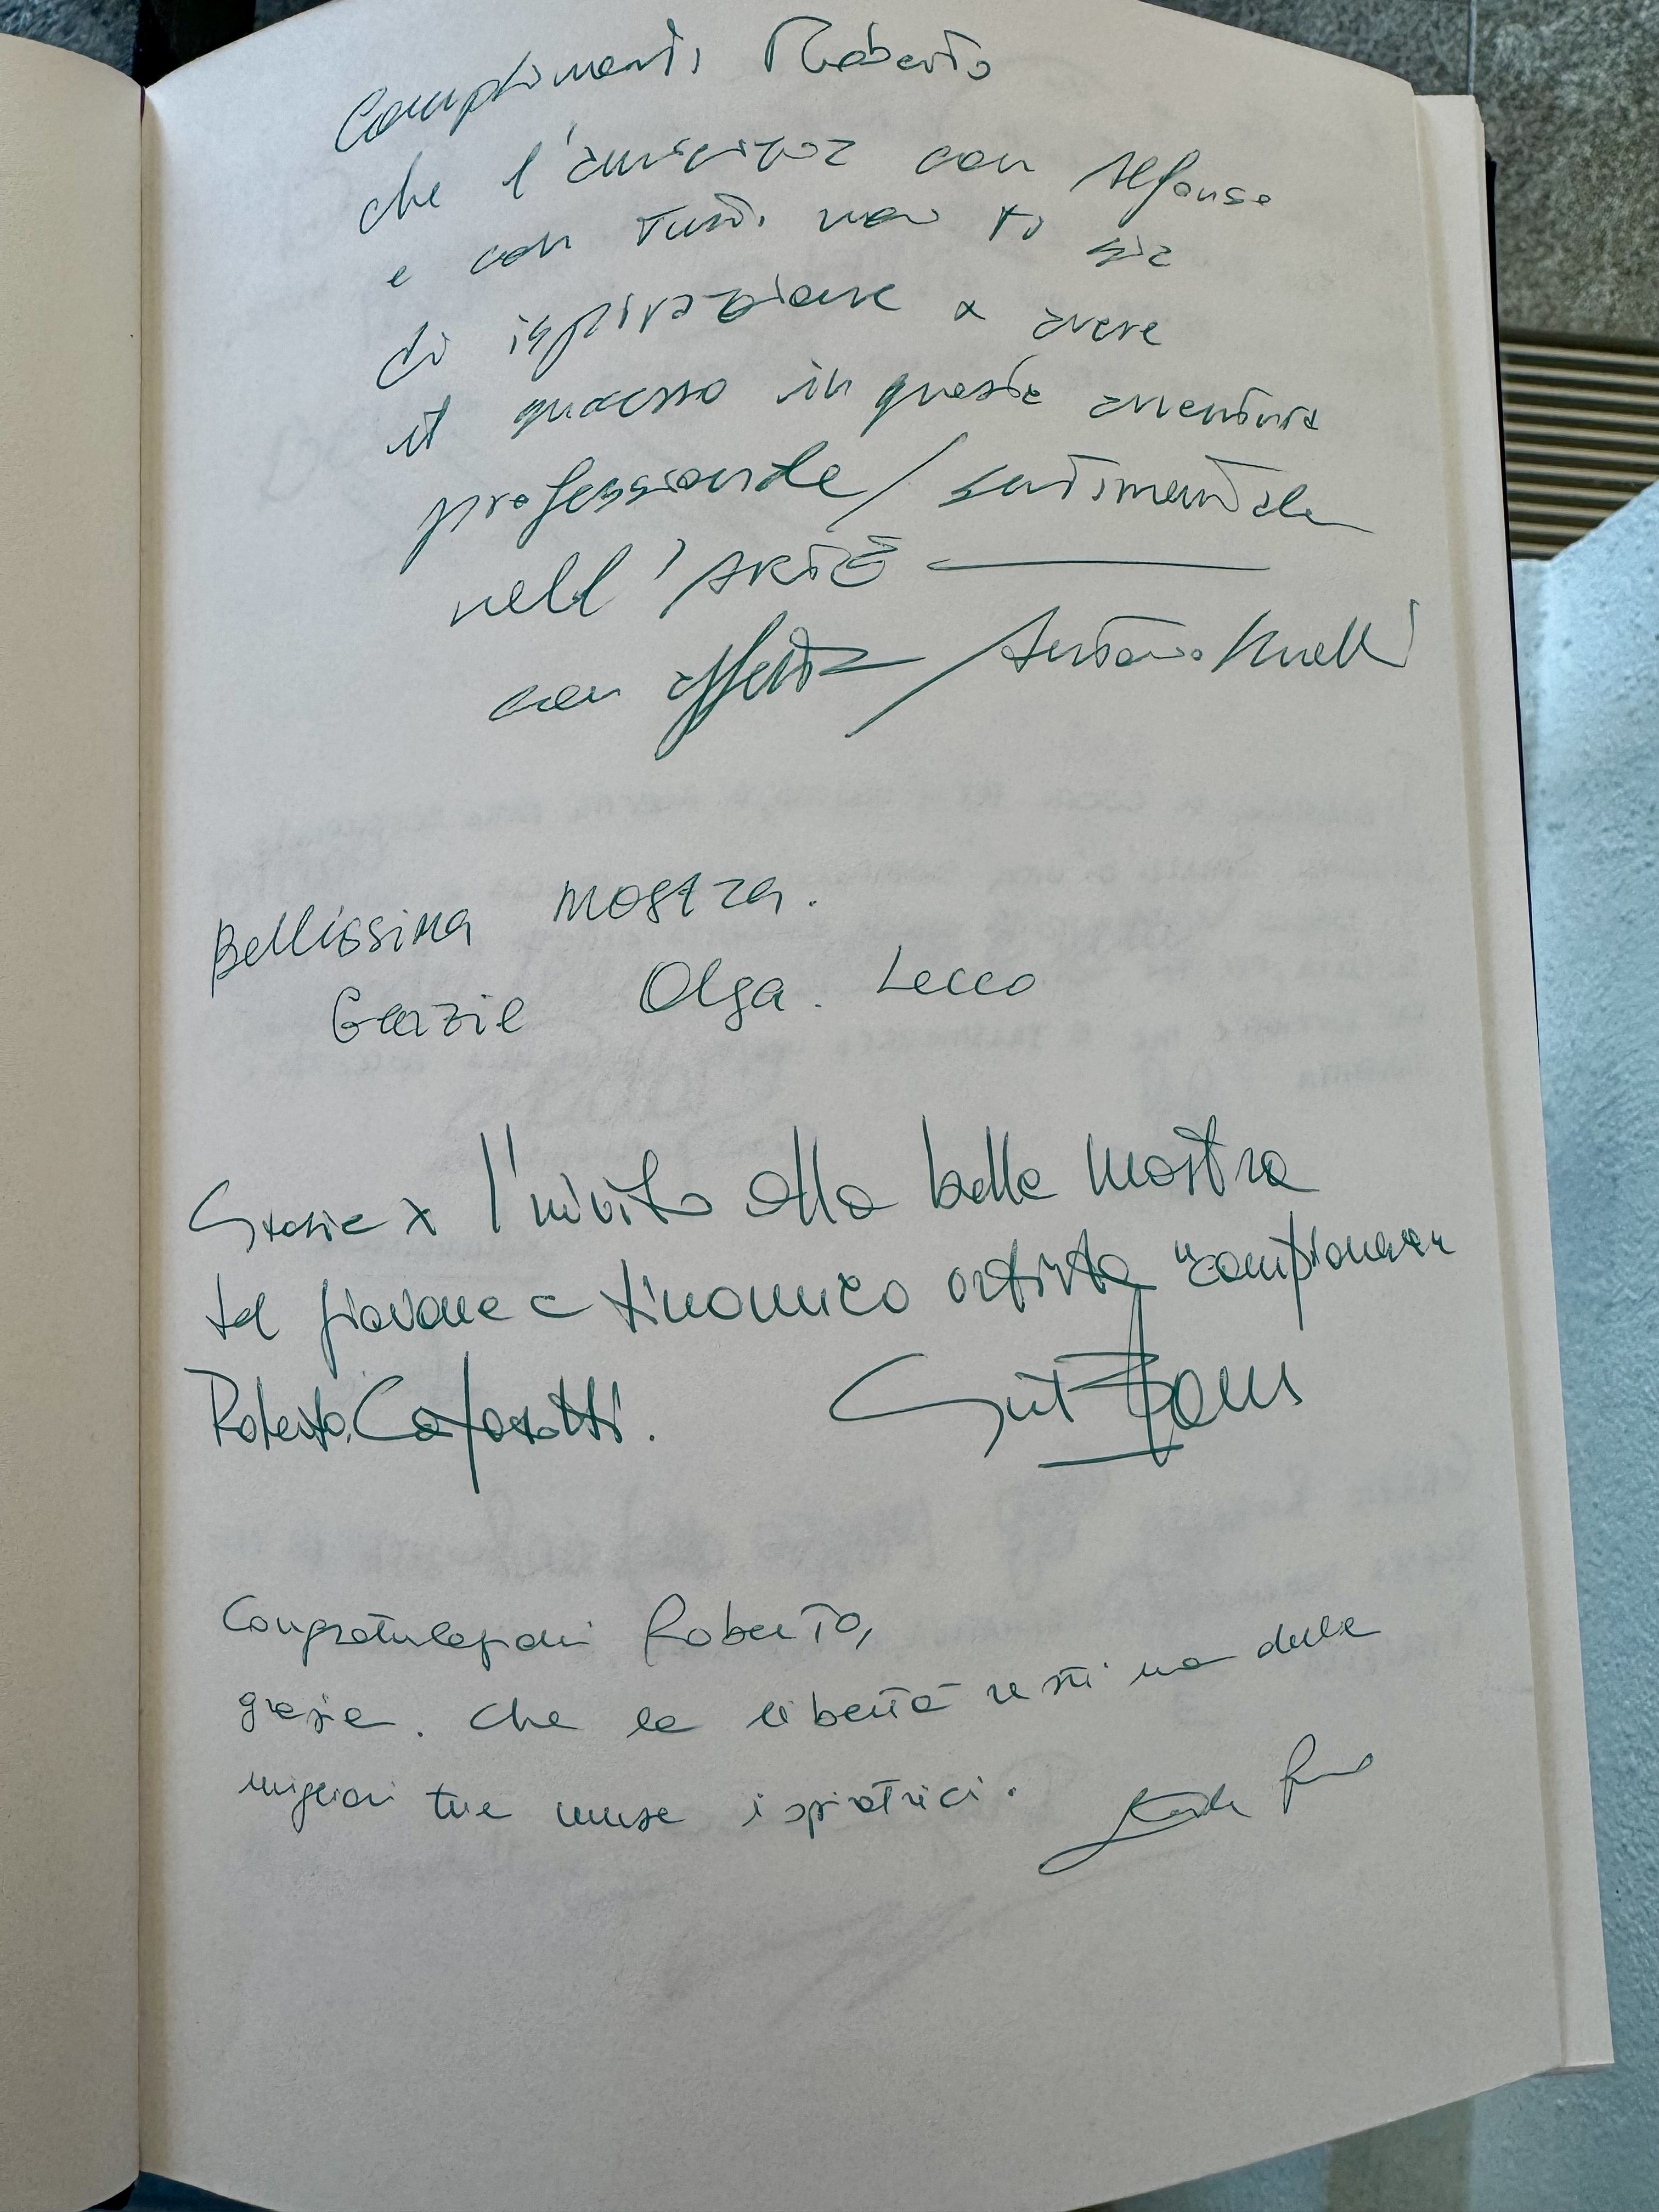 Complimenti Roberto
che l'amicizia con Alfonso
e con tutti noi ti sia
di ispirazione x avere
il successo in questa avventura
professionale / sentimentale
nell'ARTE
con affetto / Antonio
Bellissima mostra.
Grazie Olga. Lecco
Grazie x l'invito alla bella mostra
del giovane e dinamico artista "campionese"
Roberto
Congratulazioni Roberto,
grazie. Che la libertà resti una delle
migliori tue muse ispiratrici.